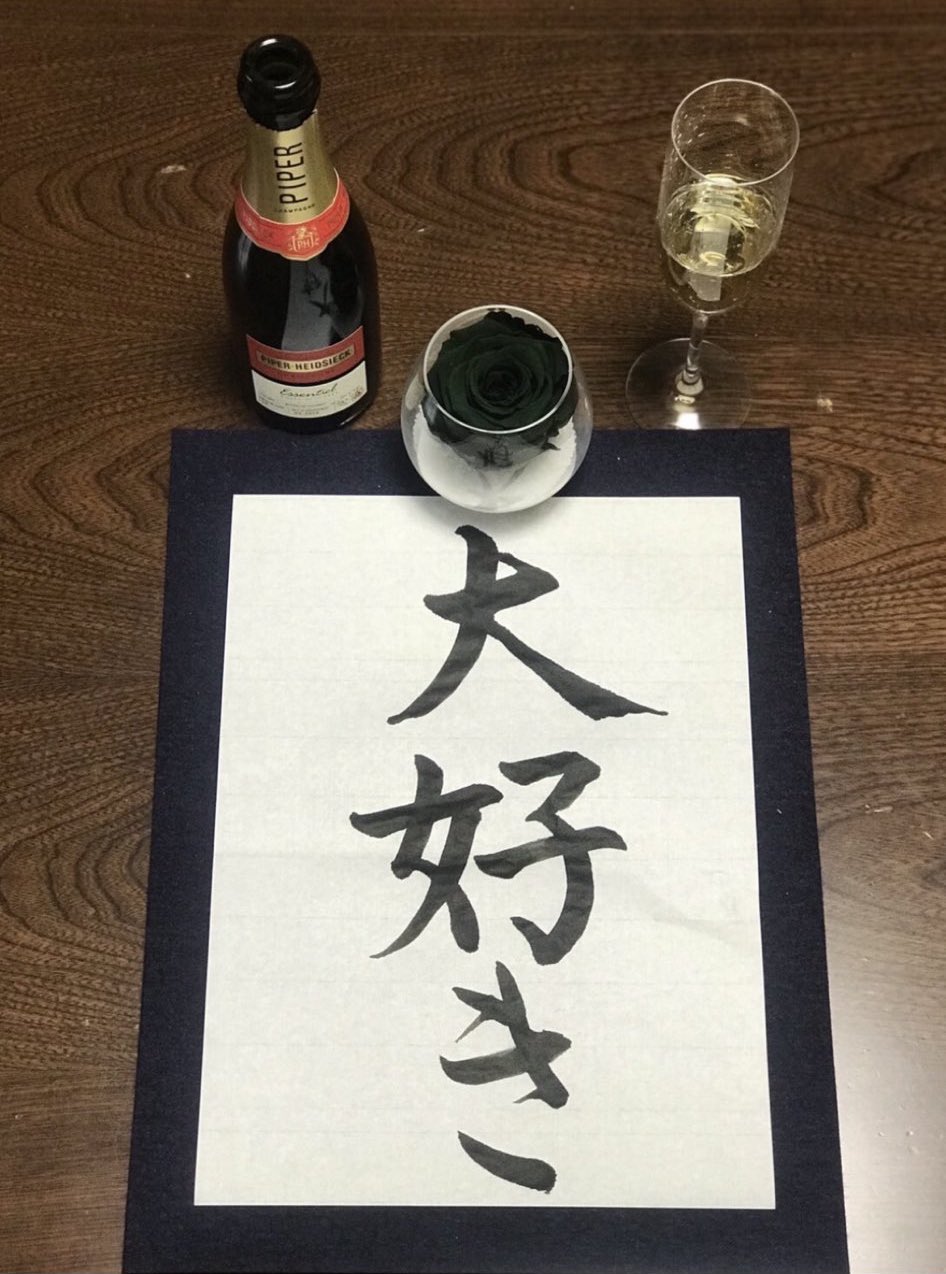 PIPER
CHAMPAGNE
PH
PIPER-HEIDSIECK
Essentiel
大好き